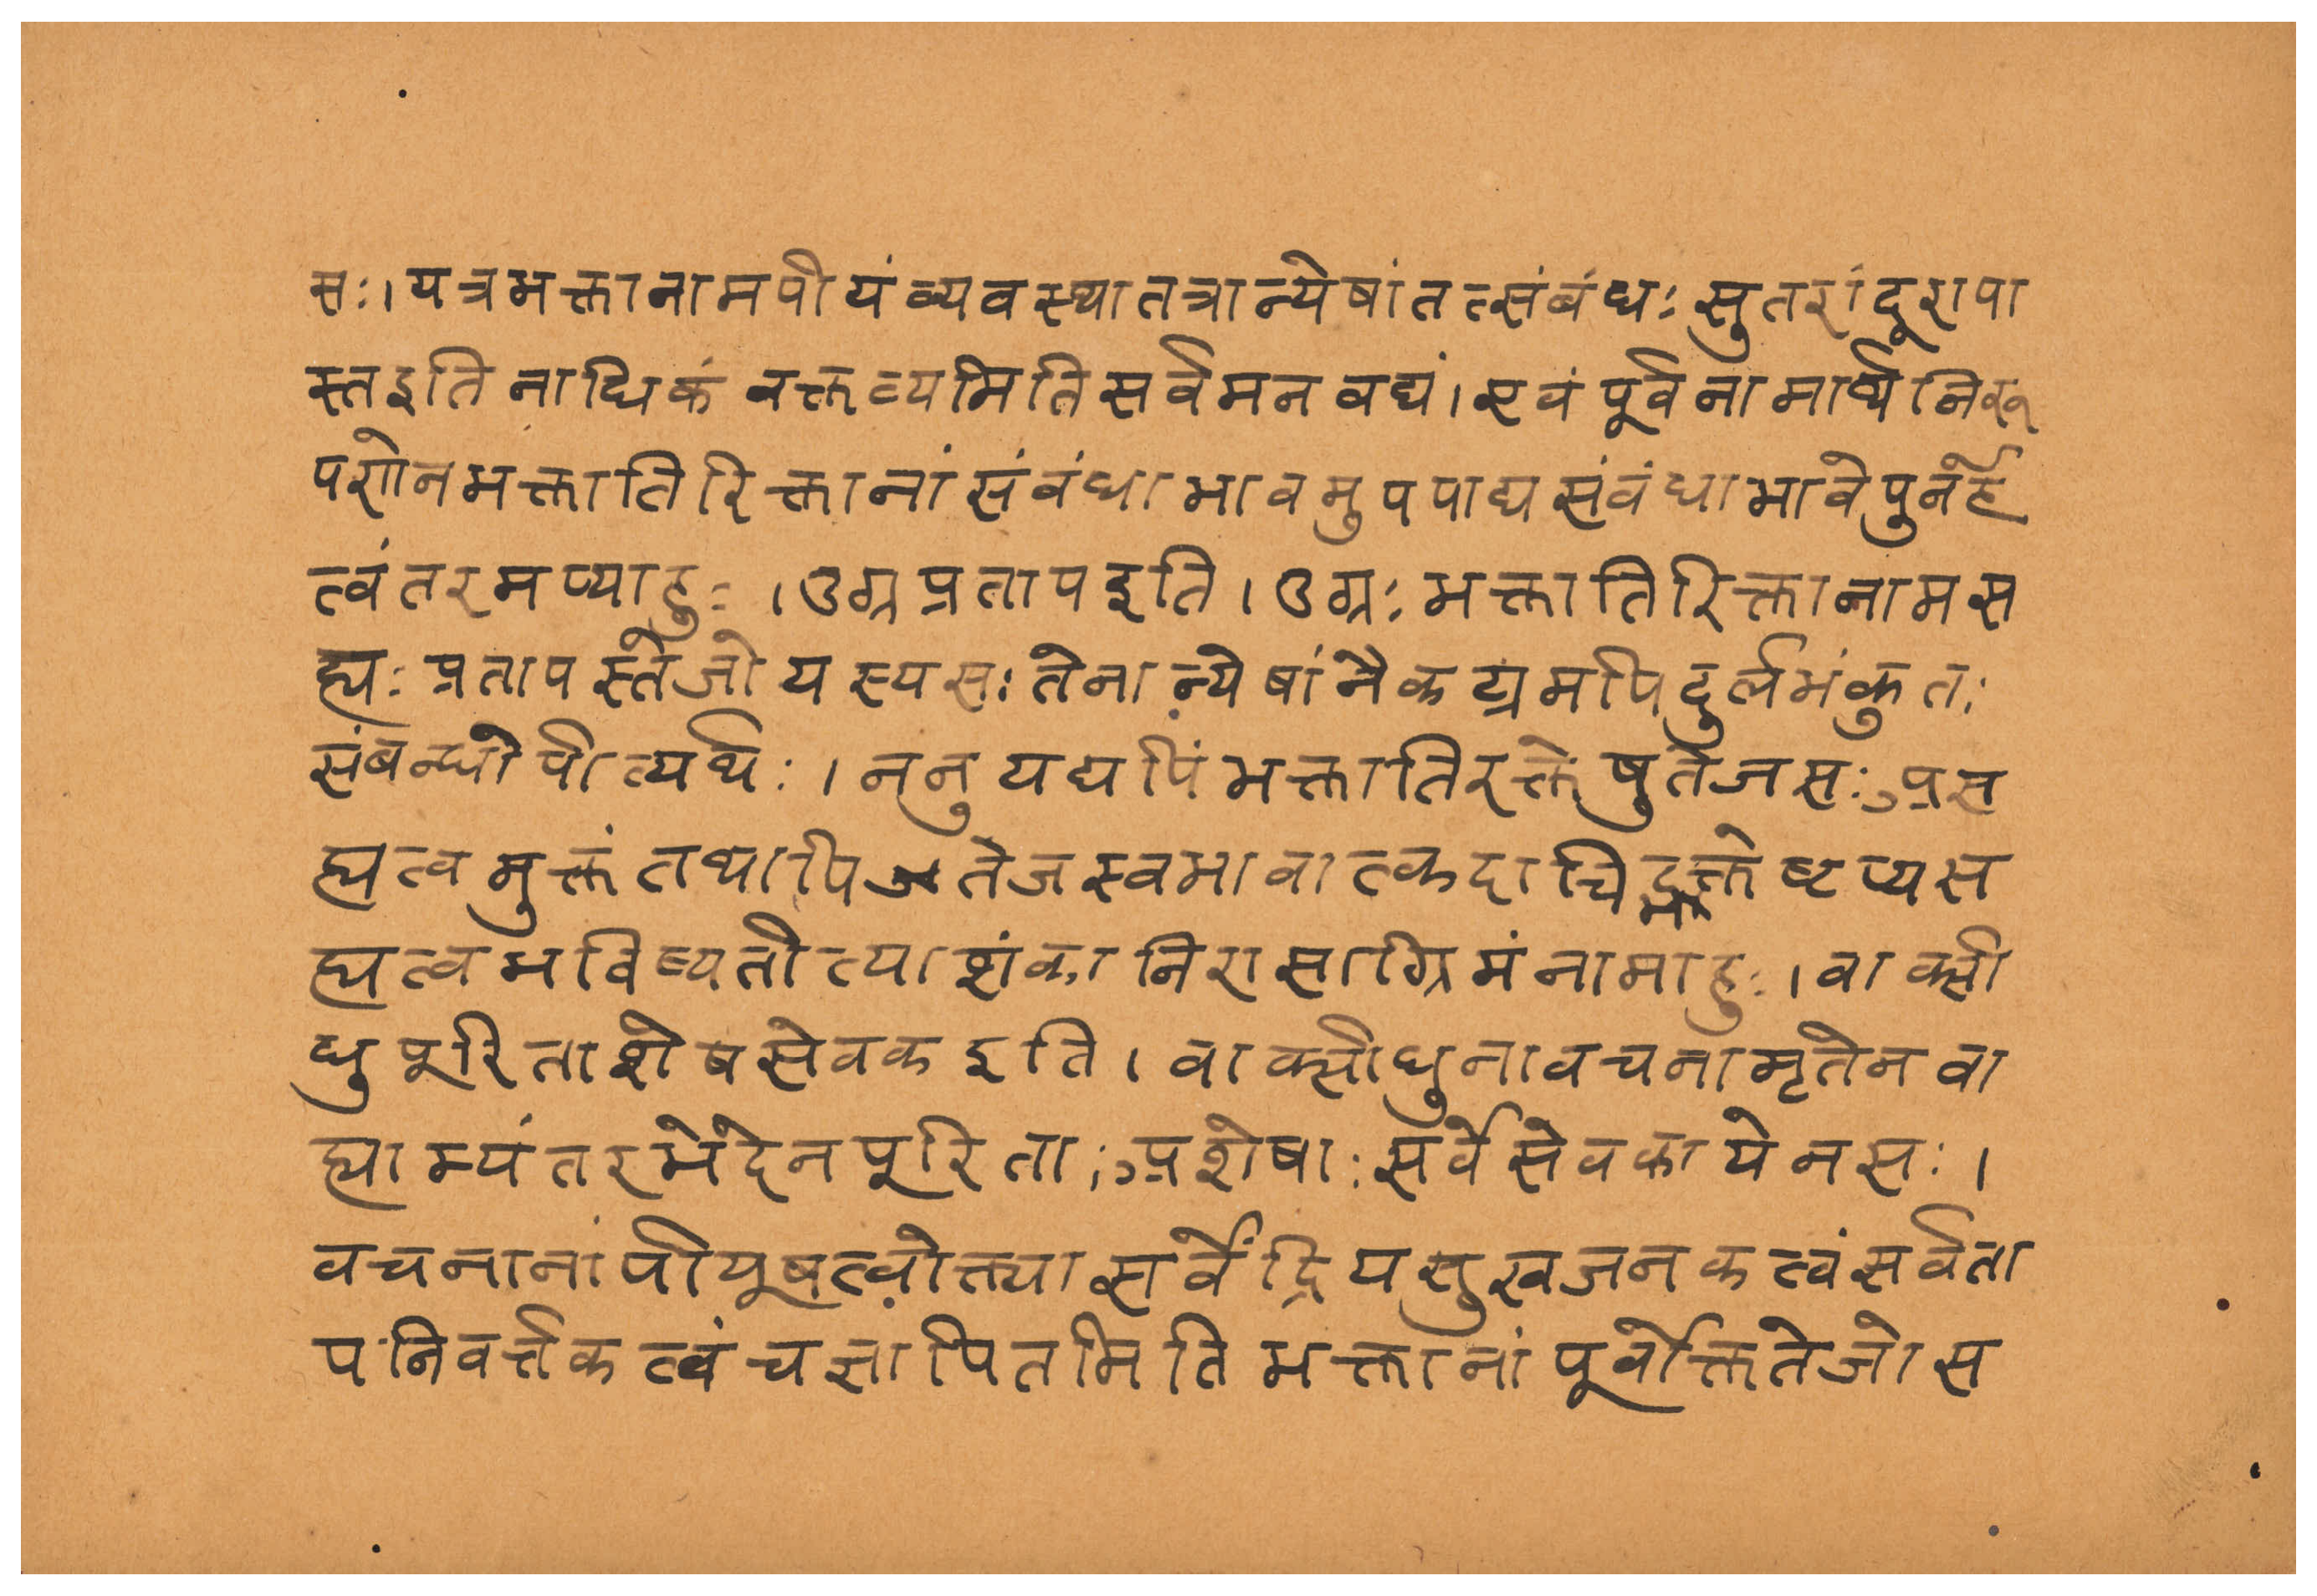 सः।यत्रभक्तानामपीयंव्यवस्थातत्रान्येषांतत्संबंधःसुतरांदूरापा
स्तइतिनाधिकंवक्तव्यमितिसर्वमनवद्यं।एवंपूर्वनामार्थनिरू
पणेनभक्तातिरिक्तानांसंबंधाभावमुपपाद्यसंबंधाभावेपुनर्हे
त्वंतरमप्याहुः।उग्रप्रतापइति।उग्रःभक्तातिरिक्तानामस
ह्यःप्रतापस्तेजोयस्यसःतेनान्येषांनैकट्यमपिदुर्लभंकुतः
संबन्धोपीत्यर्थः।ननुयद्यपिंभक्तातिरक्तेषुतेजसःअस
ह्यत्वमुक्तंतथापितेजस्वभावात्कदाचिद्भक्तेष्वप्यस
ह्यत्वभविष्यतीत्याशंकानिरासाग्रिमंनामाहुः।वाक्सी
धुपूरिताशेषसेवकइति।वाक्सीधुनावचनामृतेनबा
ह्याभ्यंतरभेदेनपूरिताःअशेषाःसर्वेसेवकायेनसः।
वचनानांपीयूषत्वोक्त्यासर्वेंद्रियसुखजनकत्वंसर्वता
पनिवर्त्तकत्वंचज्ञापितमितिभक्तानांपूर्वोक्ततेजोस